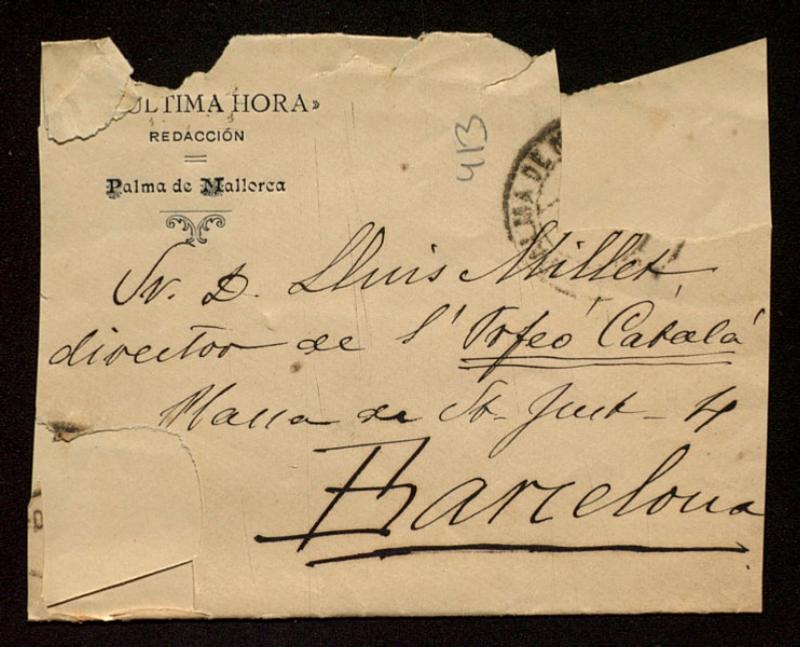 ÚLTIMA HORA»
REDACCIÓN
Palma de Mallorca
413
LMA DE M
Sr. D. Lluis Millet,
director de l' "Orfeó Catalá"
Plassa de St. Just - 4
Barcelona